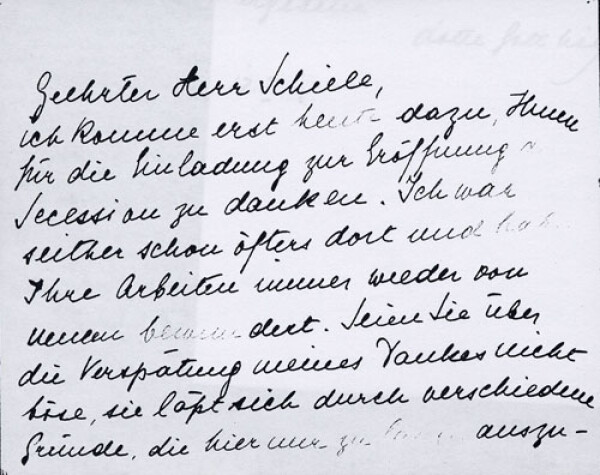 Geehrter Herr Schiele,
ich komme erst heute dazu, Ihnen
für die Einladung zur Eröffnung
Secession zu danken. Ich war
seither schon öfters dort und hab
Ihre Arbeiten immer wieder von
neuem bewundert. Seien Sie über
die Verspätung meines Dankes nicht
böse, sie läßt sich durch verschiedene
Gründe, die hier nur zu auszu-